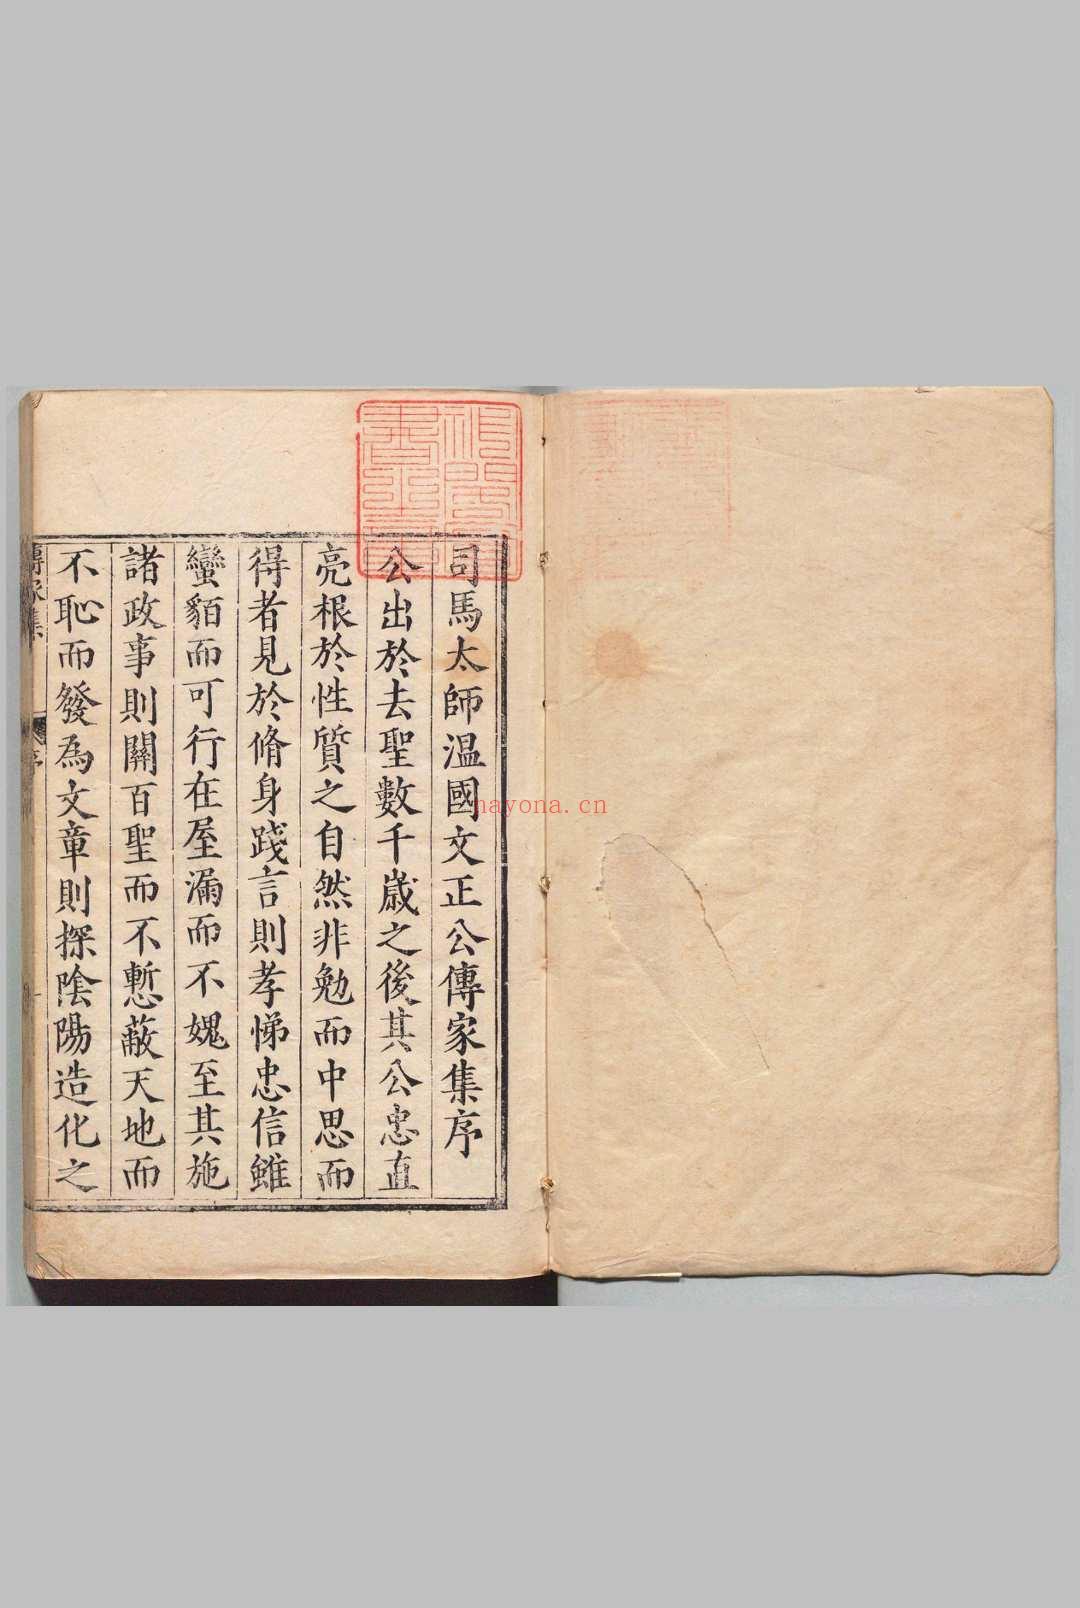 司馬太師溫國文正公傳家集序
公出於去聖數千嵗之後其公忠直
亮根於性質之自然非勉而中思而
得者見於脩身踐言則孝悌忠信雖
蠻貊而可行在屋漏而不媿至其施
諸政事則關百聖而不慙蔽天地而
不恥而發為文章則探陰陽造化之
傳家集
序
nayona.cn